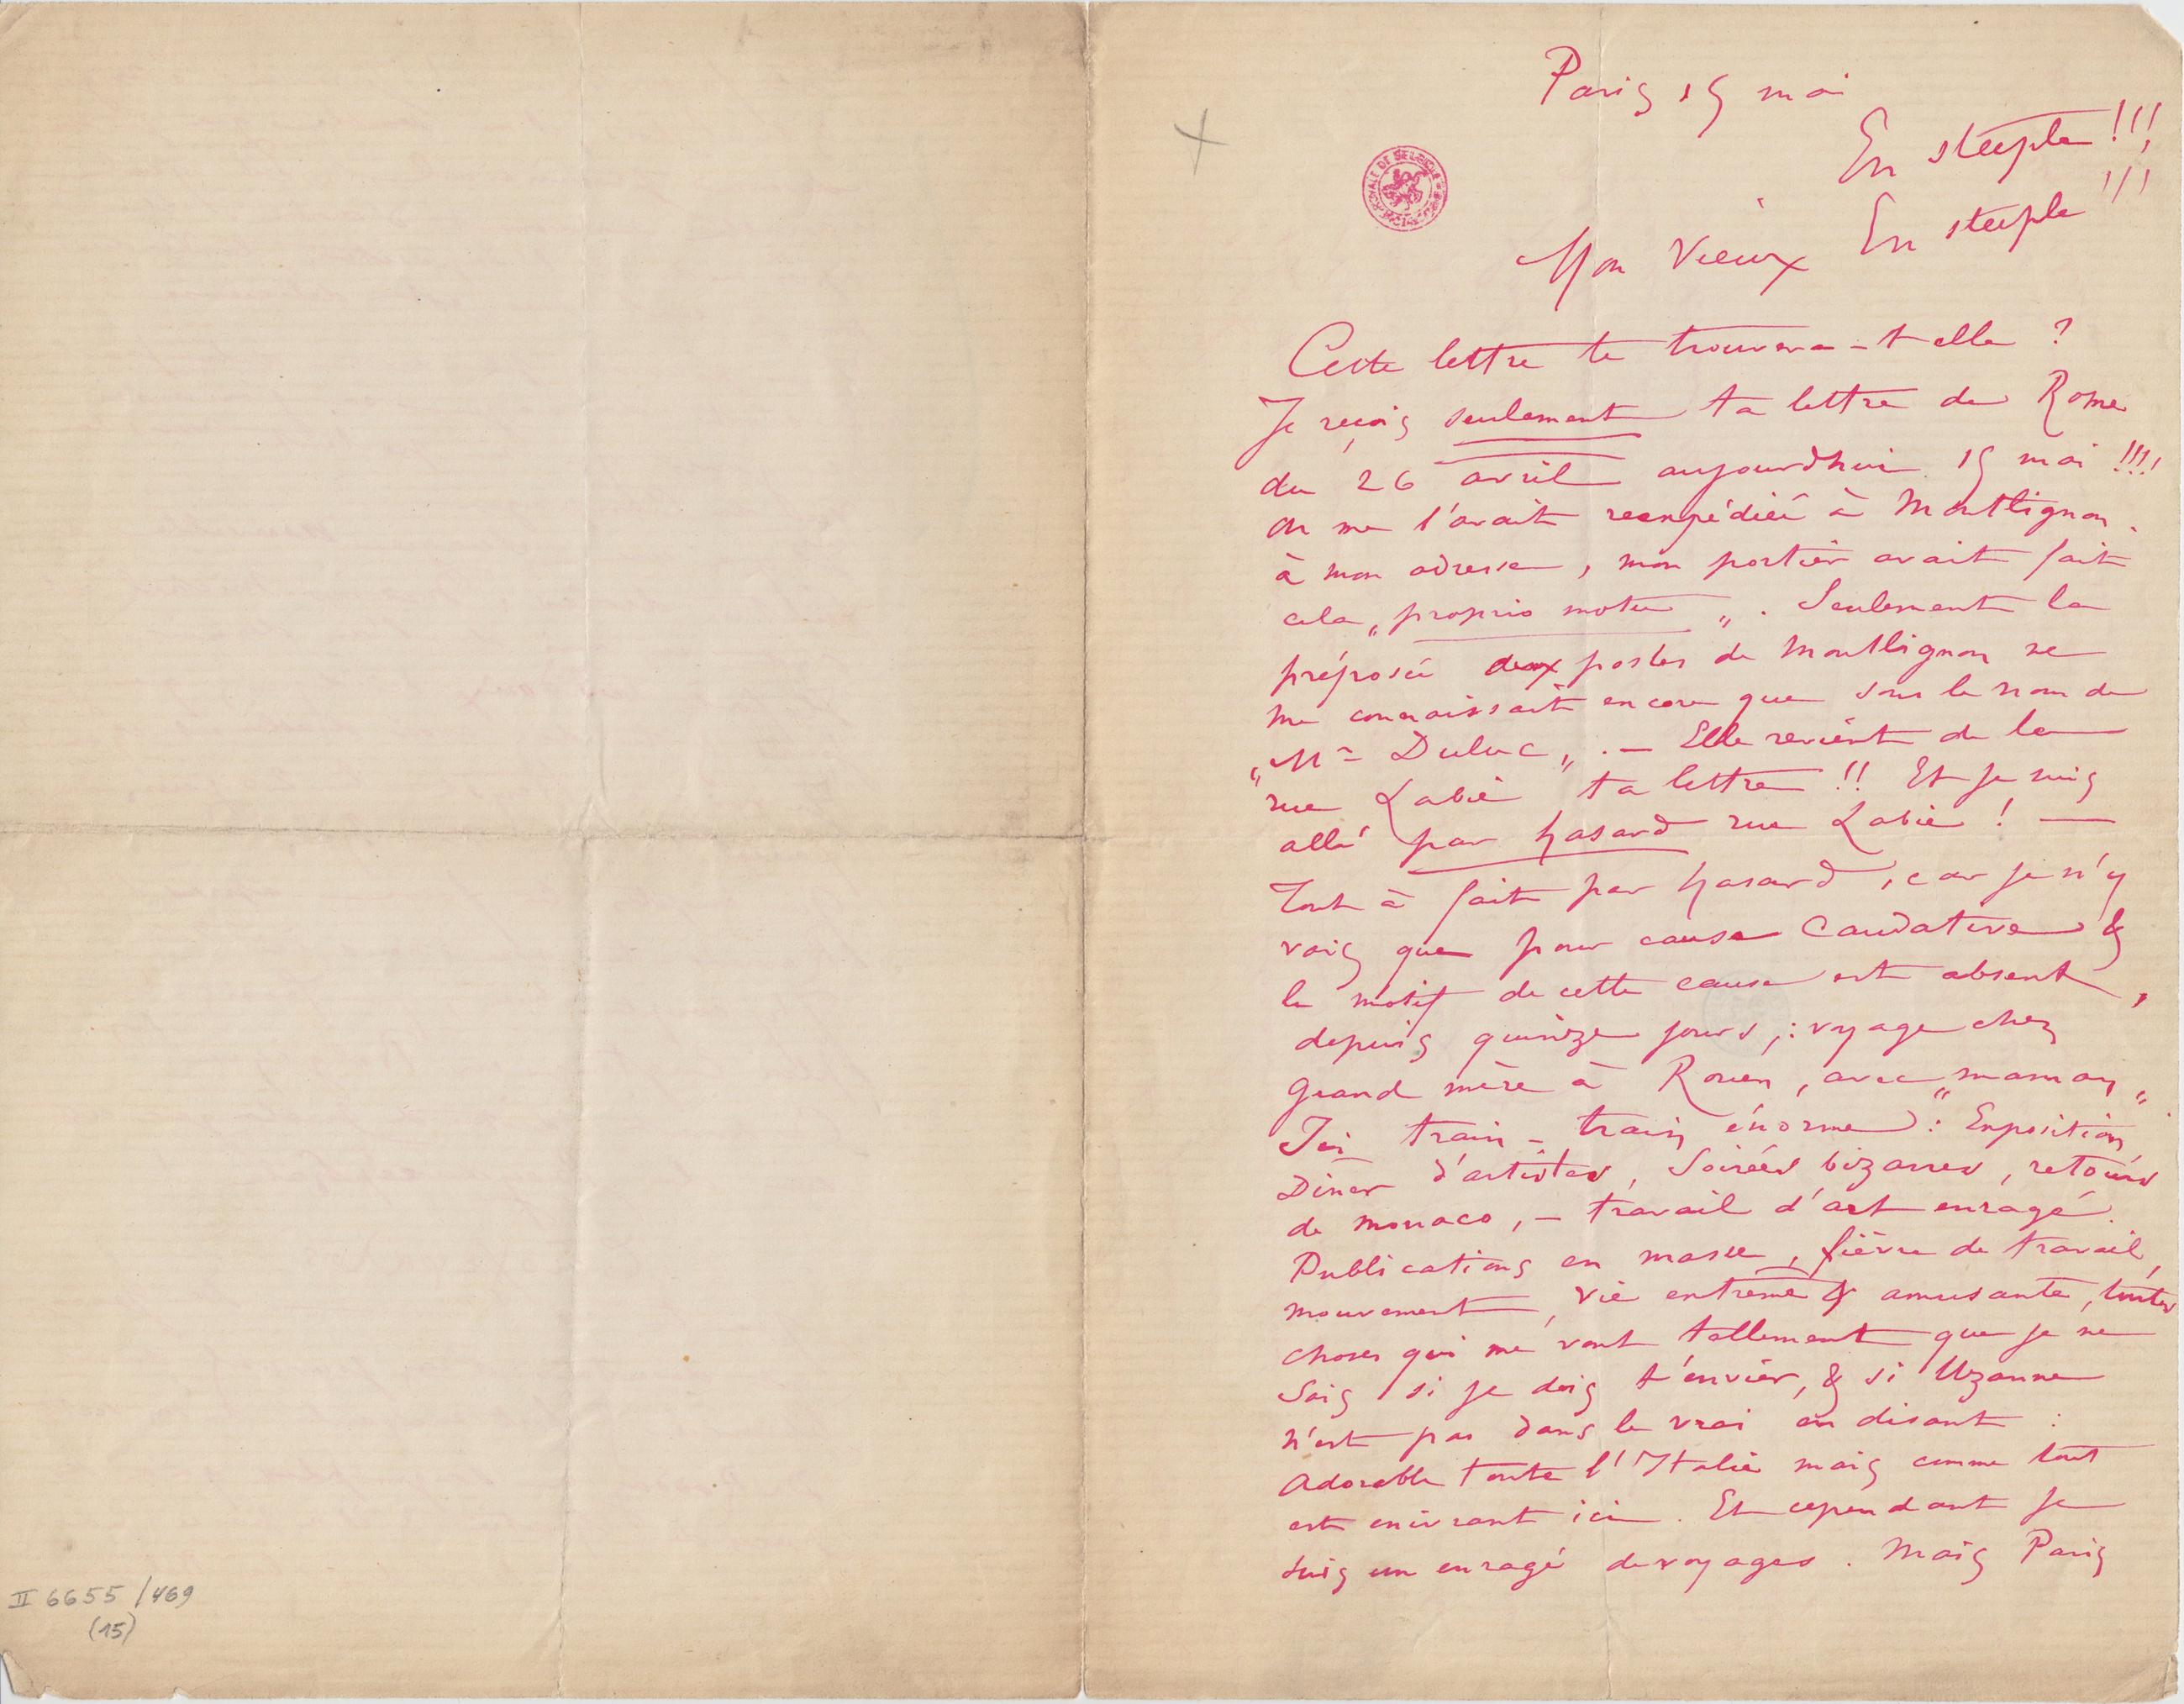 Paris 15 mai
En steeple!!!
En steeple!!!
Mon Vieux
Cette lettre te trouvera-t-elle ?
Je reçois seulement ta lettre de Rome
du 26 avril aujourdhui 15 mai !!!!
On me l'avait reexpédiée à Montlignon.
à mon adresse, mon portier avait fait
cela „proprio motu„. Seulement la
préposée aux postes de Montlignon ne
me connaissait encore que sous le nom de
„Mr Duluc„. — Elle revient de la
rue Labie ta lettre !! Et je suis
allé par hasard rue Labie ! —
Tout à fait par hasard, car je n'y
vais que pour cause Caudative &
le motif de cette cause est absent,
depuis quinze jours,: voyage chez
Grand mère à Rouen, avec „maman„
Ici train-train énorme : Exposition
Diner d'artistes, Soirées bizarres, retours
de monaco, — travail d'art enragé.
Publications en masse, fièvre de travail,
mouvement, vie extrême & amusante, toutes
choses qui me vont tellement que je ne
sais si je dois t'envier, & si Uzanne
n'est pas dans le vrai en disant :
Adorable toute l'Italie mais comme tout
est enivrant ici. Et cependant je
suis un enragé de voyages. Mais Paris
II 6655/469
(15)